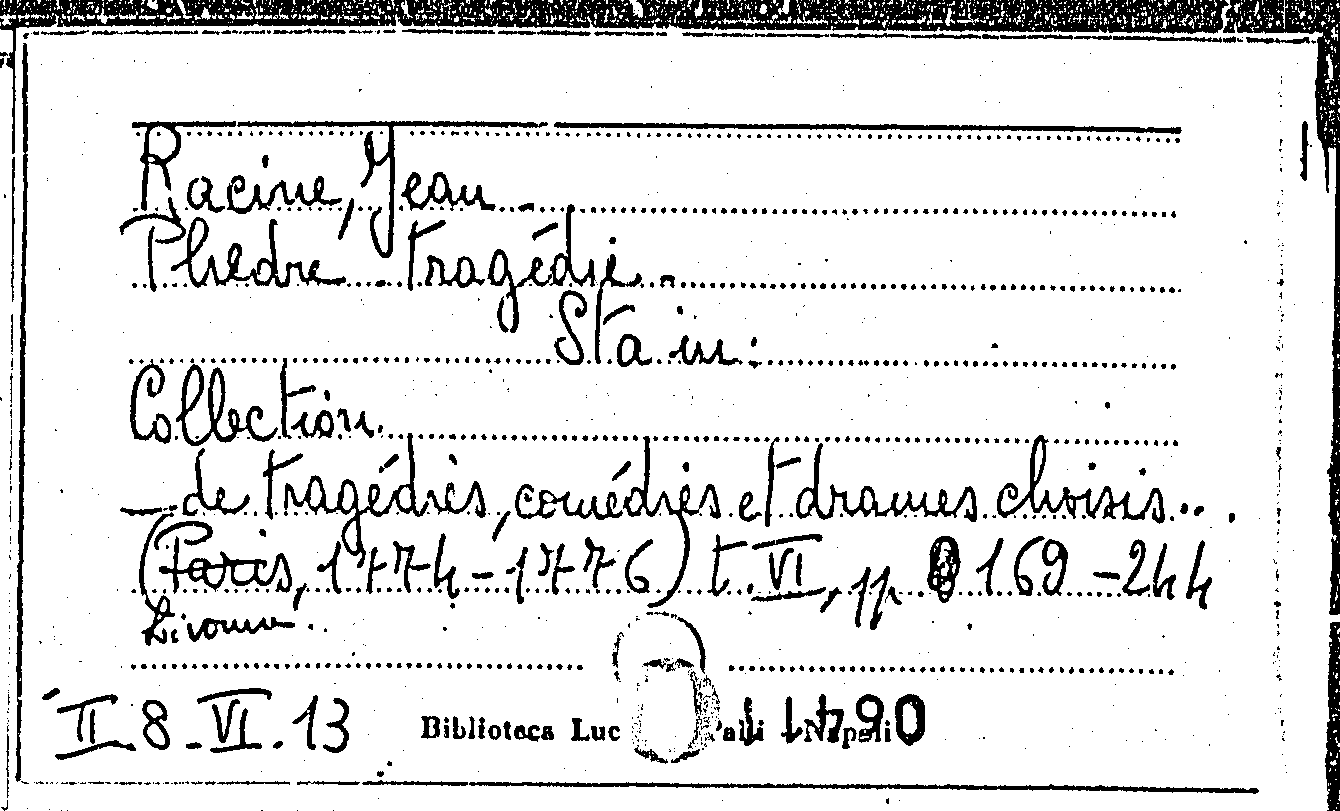 Racine, Jean -
Phedre - tragédie -
Sta in:
Collection
— de tragédies, comédies et drames choisis...
(Paris, 1774-1776) t. VI, pp 169-244
Livourne.
II. 8. VI. 13 Biblioteca Luc